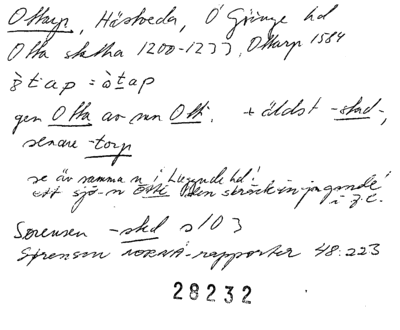 Ottarp, Hästveda, Ö Göinge hd
Otta statha 1200-1233, Ottarp 1584
ò̀ t: a p = ò t a p
gen Otta av mn Otti. + äldst -stad-,
senare -torp
se äv samma n i Luggude hd!
ett sjö-n Otti
Sørensen -sted s 103
Sørensen NORNA-rapporter 48:223
28232